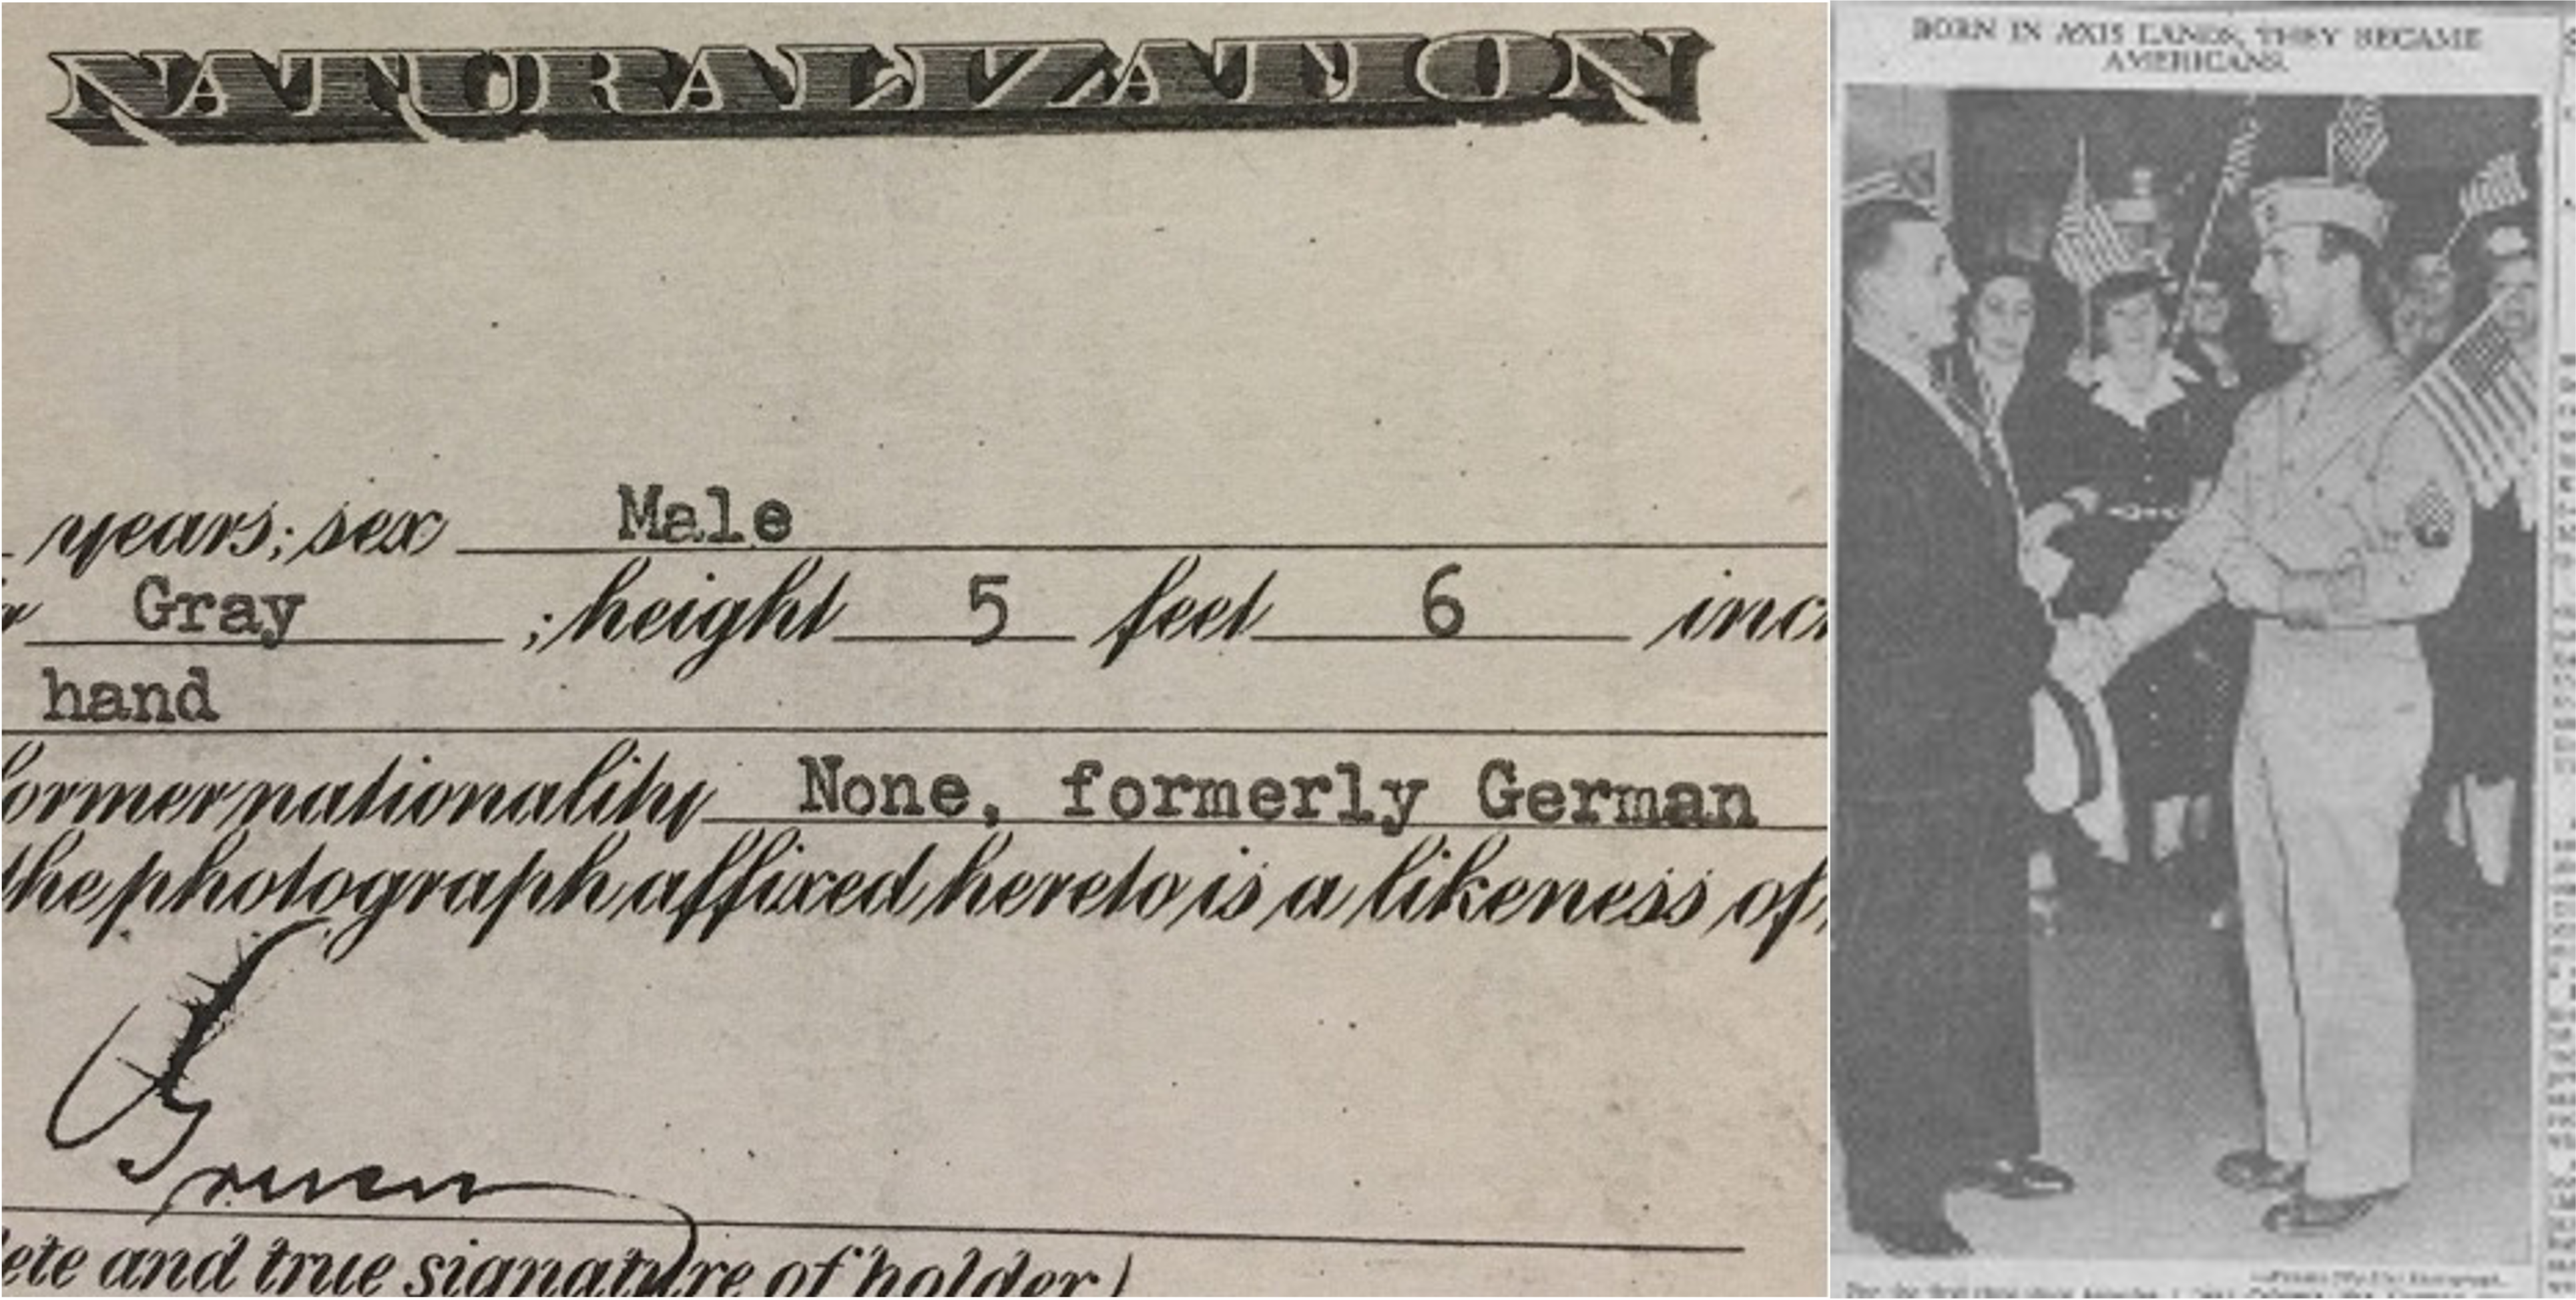 NATURALIZATION
years; sex Male
Gray ; height 5 feet 6 inc
hand
former nationality None, formerly German
the photograph affixed hereto is a likeness of
Gruen
ete and true signature of holder)
BORN IN AXIS LANDS, THEY BECAME
AMERICANS.